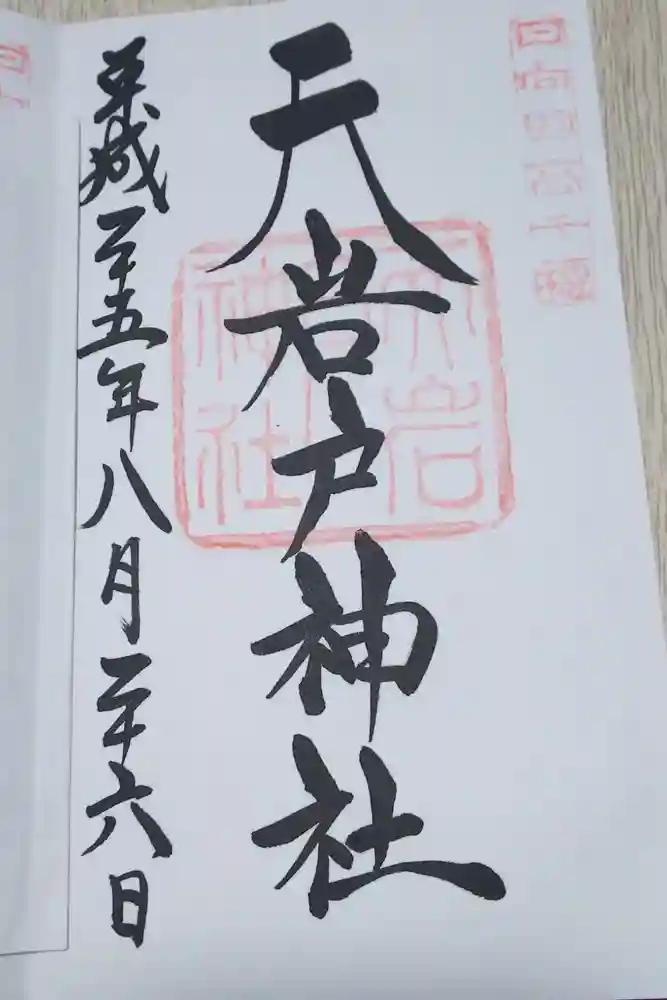 日向国高千穂
天岩戸神社
天岩
戸
神社
平成二十五年八月二十六日